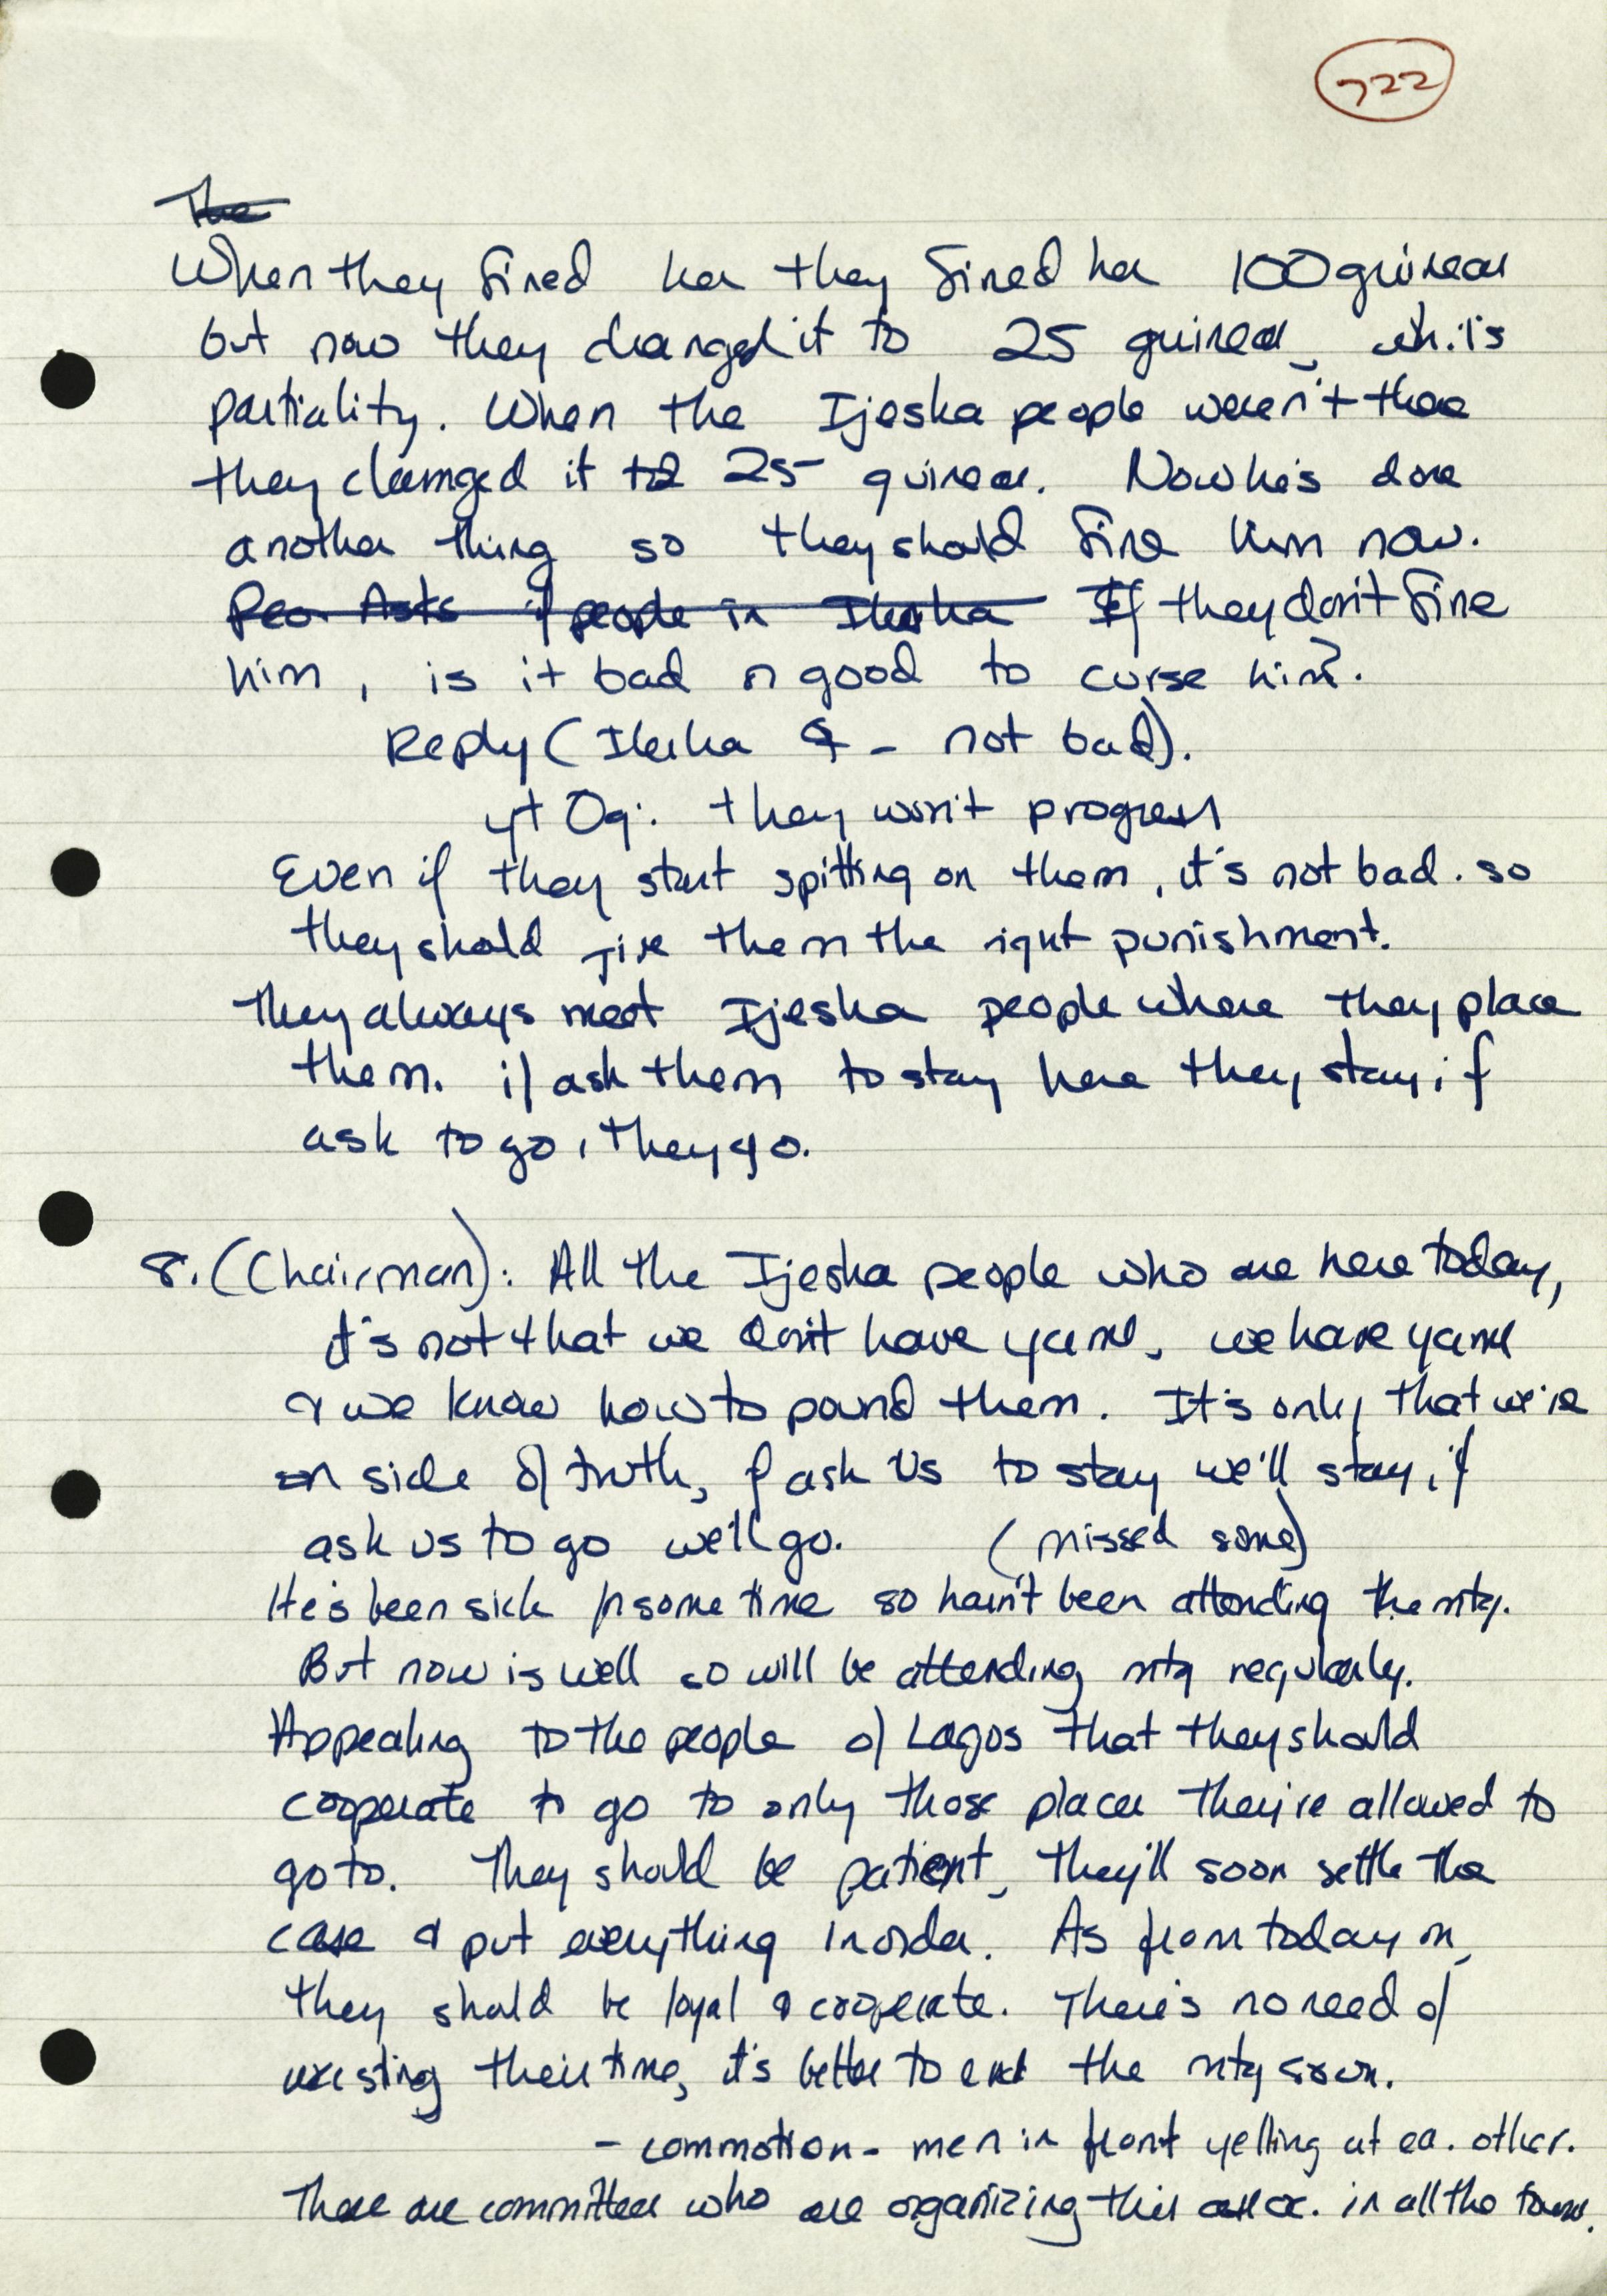 722
The
When they fined her they fined her 100 guineas
but now they changed it to 25 guineas, wh. is
partiality. When the Ijesha people weren't there
they changed it to 25 guineas. Now he's done
another thing so they should fine him now.
Peo. Asks if people in Ilesha If they don't fine
him, is it bad or good to curse him?
Reply (Ilesha ♀ - not bad).
yt Og: they won't progress
Even if they start spitting on them, it's not bad. so
they should give them the right punishment.
They always meet Ijesha people where they place
them. if ask them to stay here they stay, if
ask to go, they go.
8. (Chairman): All the Ijesha people who are here today,
it's not that we don't have yams, we have yams
& we know how to pound them. It's only that we're
on side of truth, if ask us to stay we'll stay, if
ask us to go we'll go. (missed some)
He's been sick for some time so hasn't been attending the mtg.
But now is well so will be attending mtg regularly.
Appealing to the people of Lagos that they should
cooperate to go to only those places they're allowed to
go to. They should be patient, they'll soon settle the
case & put everything in order. As from today on,
they should be loyal & cooperate. There's no need of
wasting their time, it's better to end the mtg soon.
- commotion - men in front yelling at ea. other.
There are committees who are organizing this assoc. in all the towns.